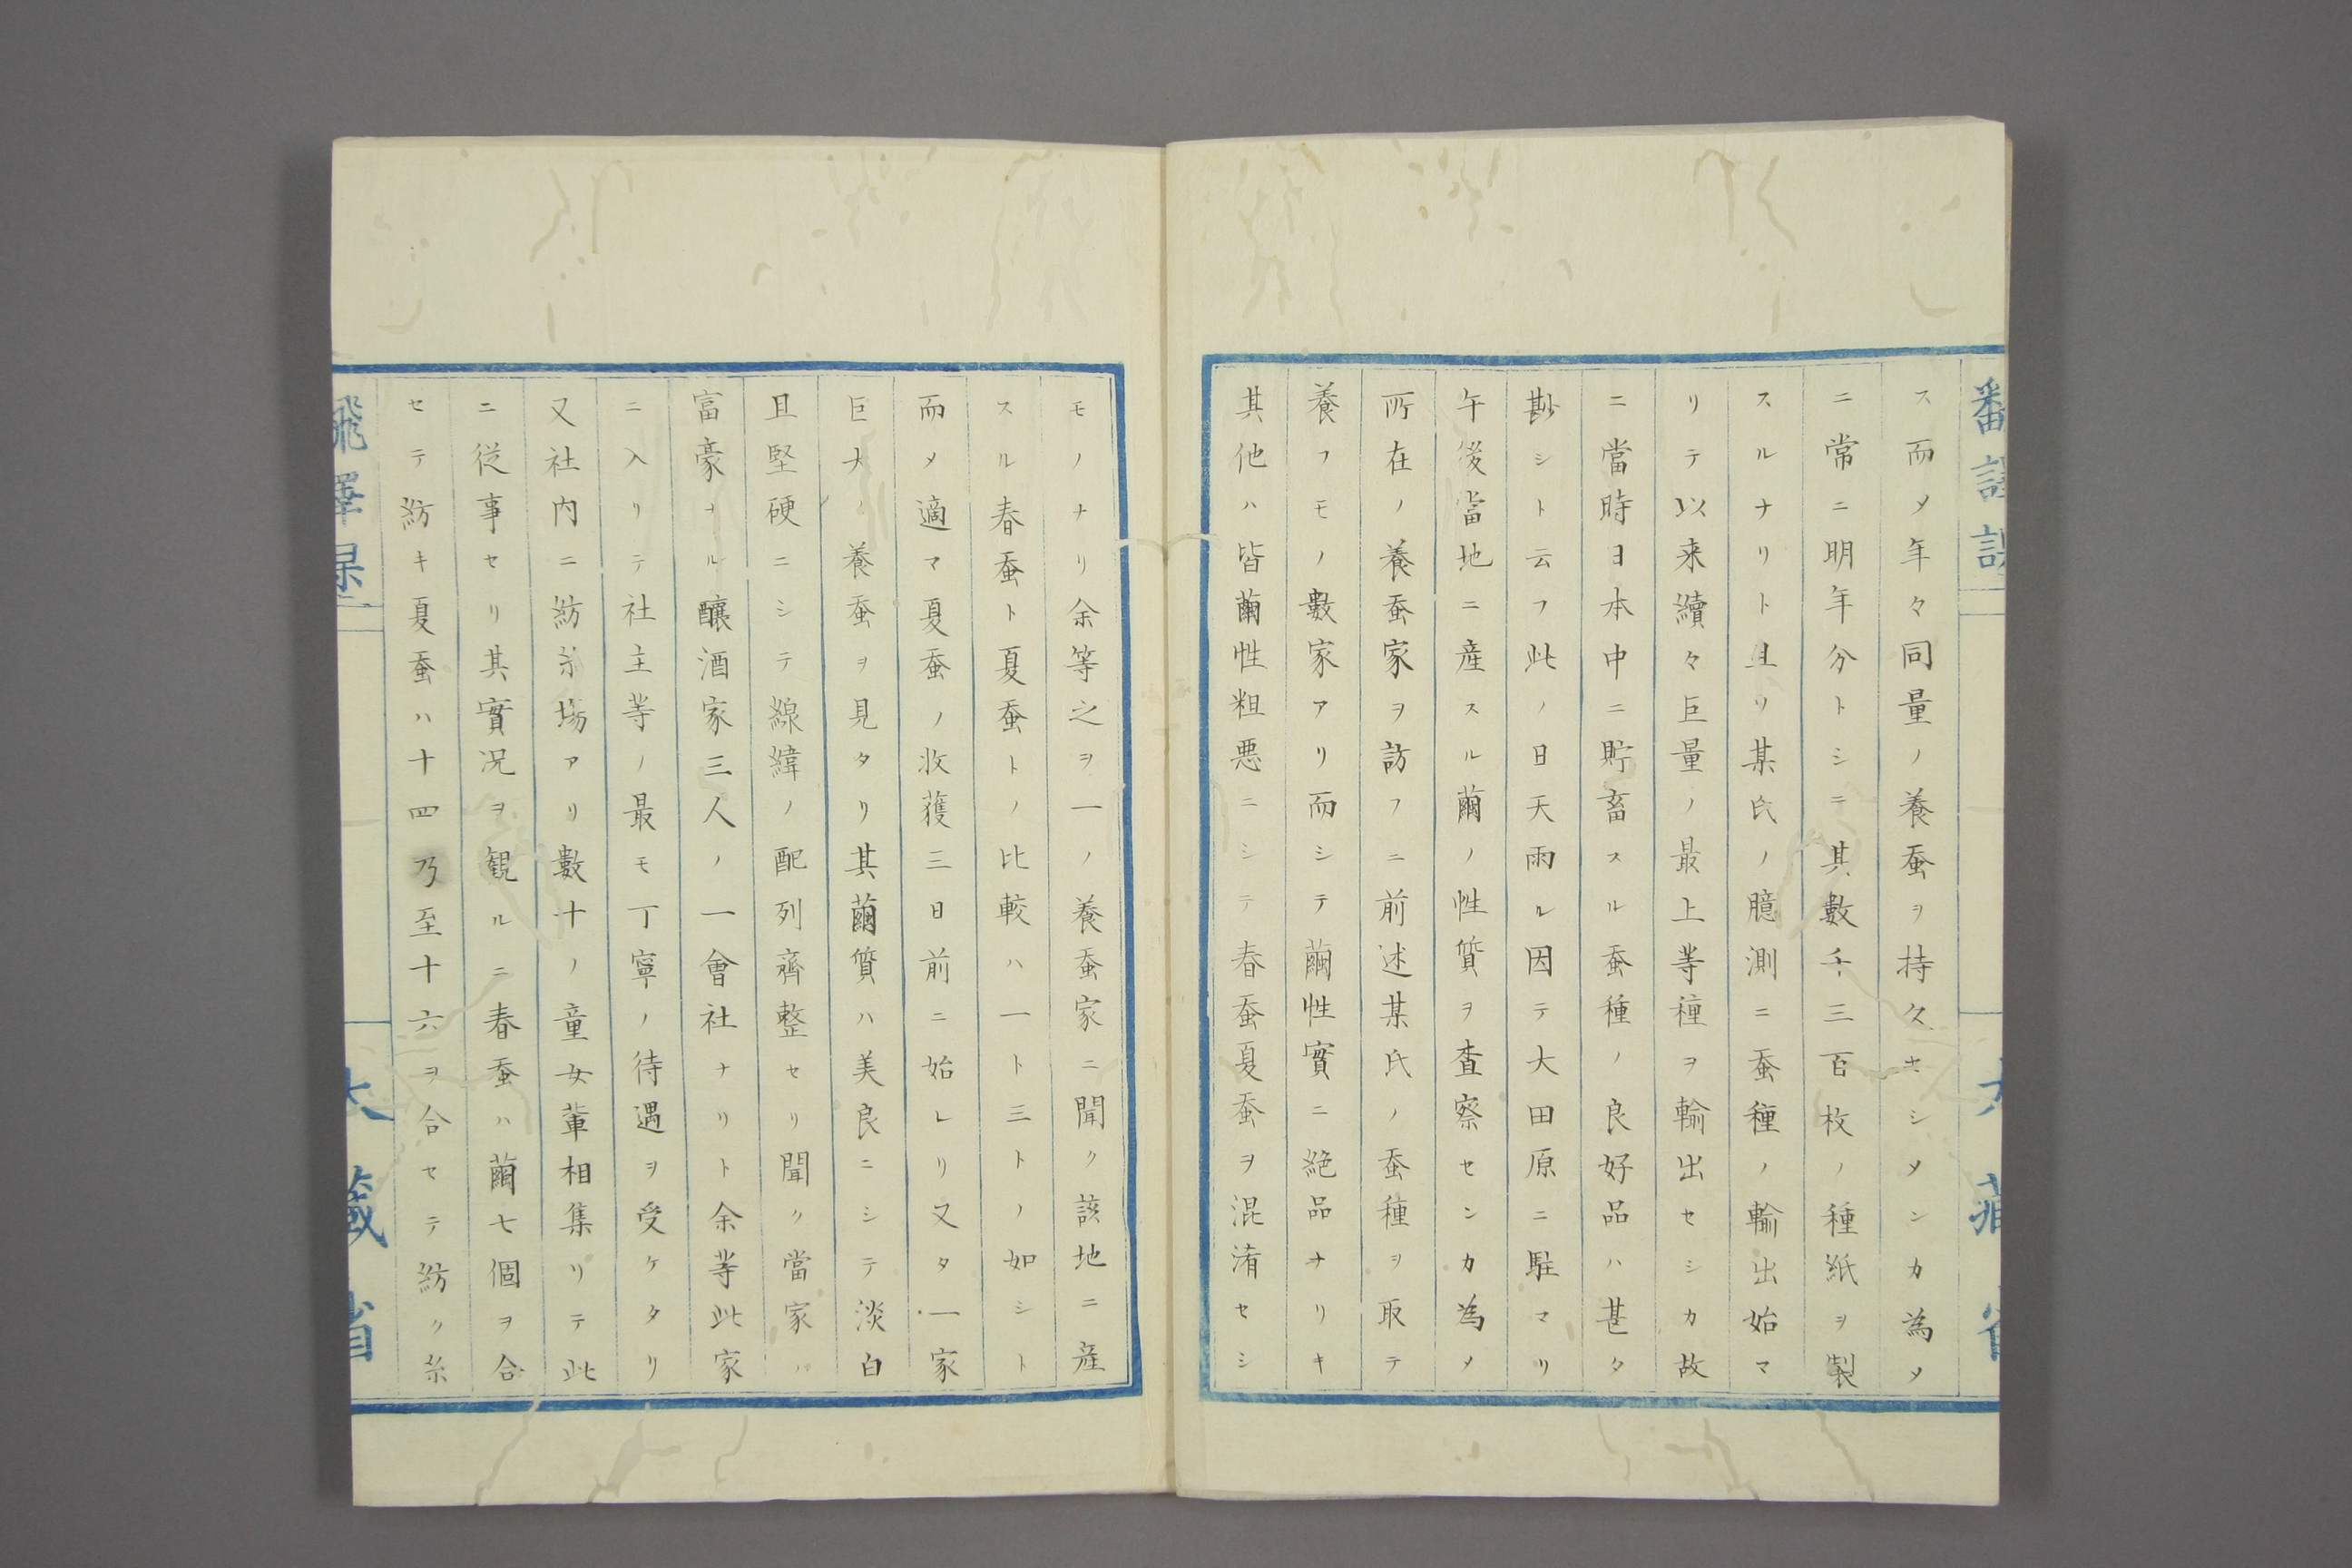 ス而メ年々同量ノ養蚕ヲ持久セシメンカ為メ
ニ常ニ明年分トシテ其數千三百枚ノ種紙ヲ製
スルナリト且ツ某氏ノ臆測ニ蚕種ノ輸出始マ
リテ以来續々巨量ノ最上等種ヲ輸出セシカ故
ニ當時日本中ニ貯畜スル蚕種ノ良好品ハ甚タ
尠シト云フ此ノ日天雨ル因テ大田原ニ駐マリ
午後當地ニ産スル繭ノ性質ヲ査察センカ為メ
所在ノ養蚕家ヲ訪フニ前述某氏ノ蚕種ヲ取テ
養フモノ數家アリ而シテ繭性實ニ絶品ナリキ
其他ハ皆繭性粗悪ニシテ春蚕夏蚕ヲ混淆セシ
モノナリ余等之ヲ一ノ養蚕家ニ聞ク該地ニ産
スル春蚕ト夏蚕トノ比較ハ一ト三トノ如シト
而メ適マ夏蚕ノ收獲三日前ニ始レリ又タ一家
巨大ノ養蚕ヲ見タリ其繭質ハ美良ニシテ淡白
且堅硬ニシテ線緯ノ配列齊整セリ聞ク當家ハ
富豪ナル釀酒家三人ノ一會社ナリト余等此家
ニ入リテ社主等ノ最モ丁寧ノ待遇ヲ受ケタリ
又社内ニ紡糸場アリ數十ノ童女輩相集リテ此
ニ従事セリ其實況ヲ観ルニ春蚕ハ繭七個ヲ合
セテ紡キ夏蚕ハ十四乃至十六ヲ合セテ紡ク糸
大藏省